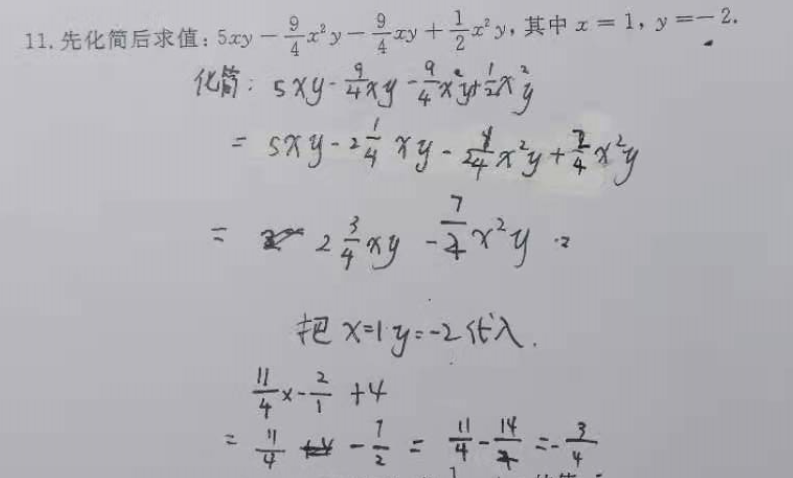 11. 先化简后求值：5xy－9/4x²y－9/4xy＋1/2x²y，其中x＝1，y＝－2.
化简：5xy-9/4xy-9/4x²y+1/2x²y
=5xy-2 1/4xy-9/4x²y+2/4x²y
=2 3/4xy-7/4x²y
把x=1 y=-2代入.
11/4×-2/1+4
=11/4-7/2=11/4-14/4=-3/4